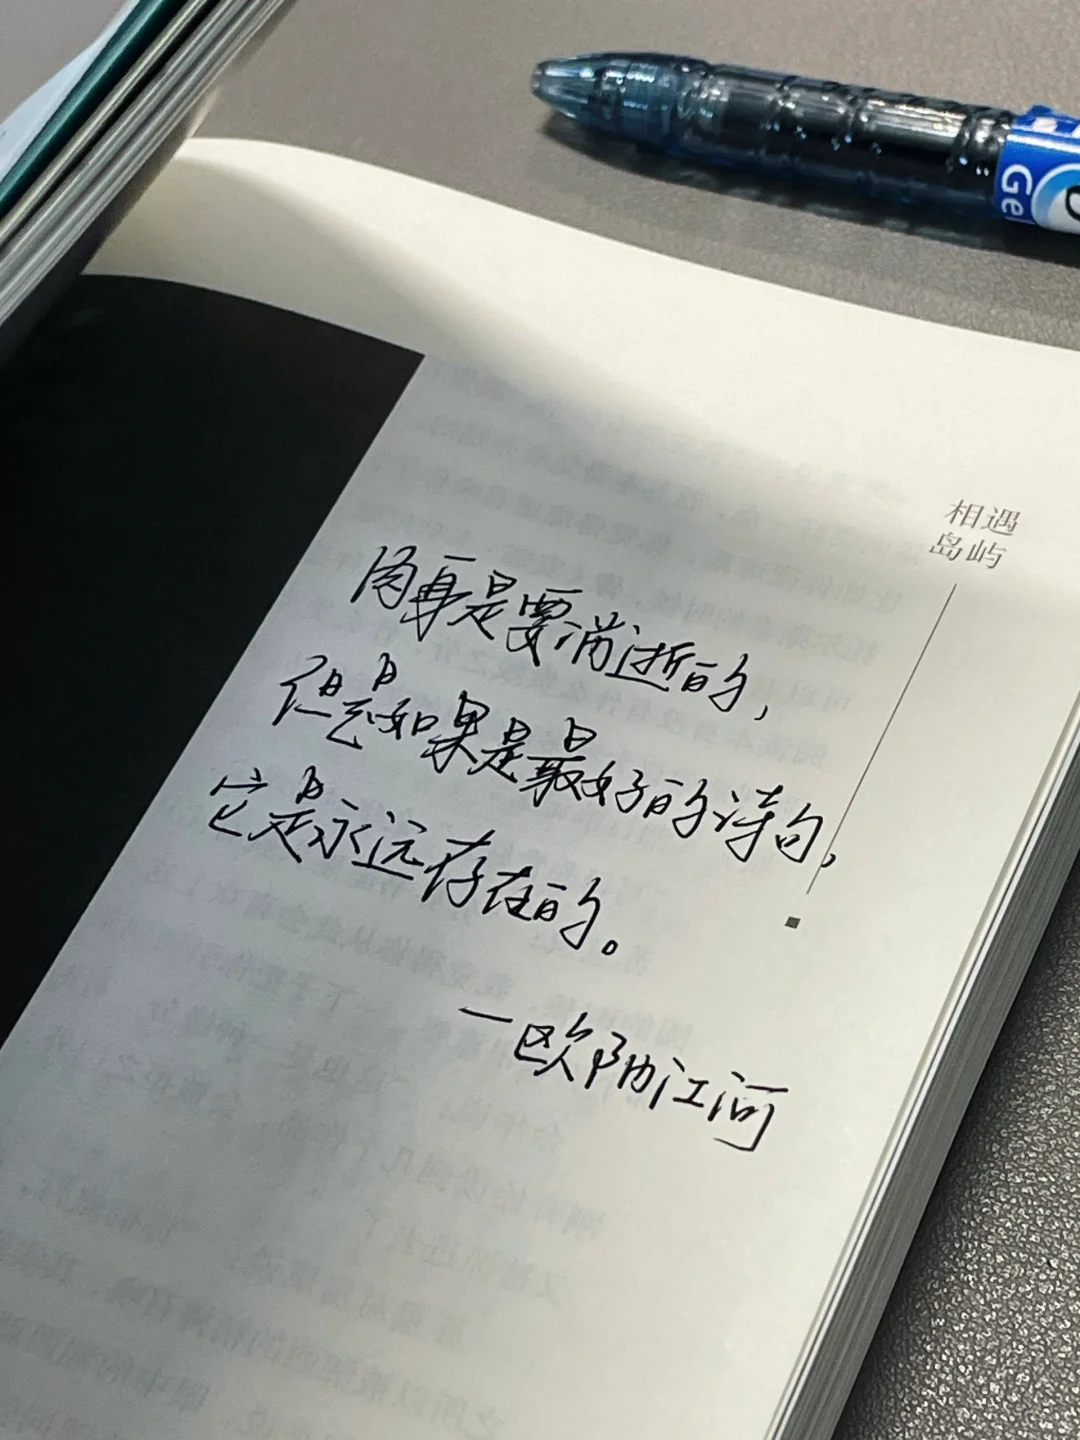 相遇
岛屿
肉身是要消逝的,
但是如果是最好的诗句,
它是永远存在的。
一欧阳江河
Ge